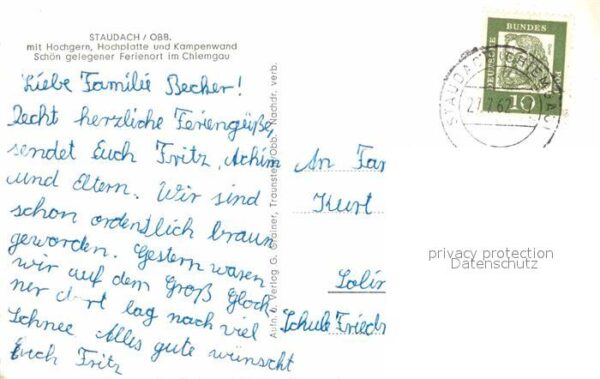 STAUDACH / OBB.
mit Hochgern, Hochplatte und Kampenwand
Schön gelegener Ferienort im Chiemgau
Liebe Familie Becher!
Recht herzliche Feriengüße,
sendet Euch Fritz, Achim
und Eltern. Wir sind
schon ordentlich braun
geworden. Gestern waren
wir auf dem Groß Glock
ner dort lag noch viel
Schnee Alles gute wünscht
Euch Fritz
Aufn. u. Verlag G. Grainer, Traunstein/Obb. Nachdr. verb.
An Fam
Kurt
Solin
Schule Friedr
DEUTSCHE BUNDES
10
STAUDACH (CHIEMGAU)
27.7.62
privacy protection
Datenschutz